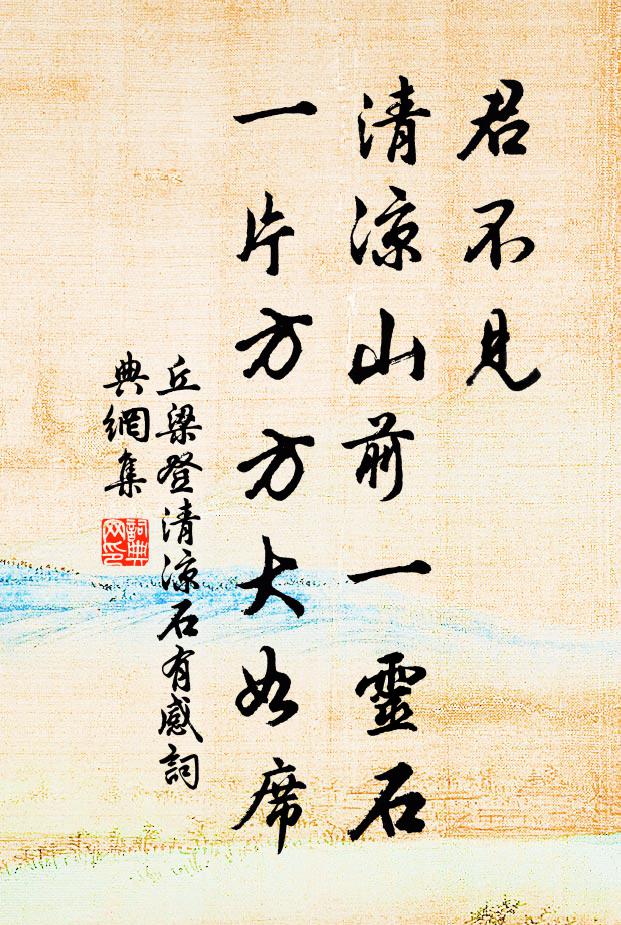 君不見
清凉山前一靈石
一片方方大如席
丘梁登清凉石有感詞
典網集
詞典網印